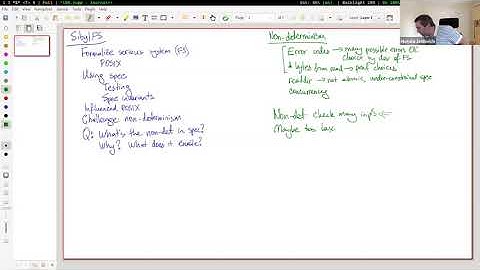 SibylFS
Formalize serious system (FS)
POSIX
Using spec
Testing
Spec invariants
Influenced POSIX
Challenge: non-determinism
Q: What's the non-det in spec?
Why? What does it enable?
Non-determinism
Error codes → many possible errors OK
choice by dev of FS
# bytes from read → perf choices
readdir → not atomic, under-constrained spec
concurrency
Non-det check many impls
Maybe too lax